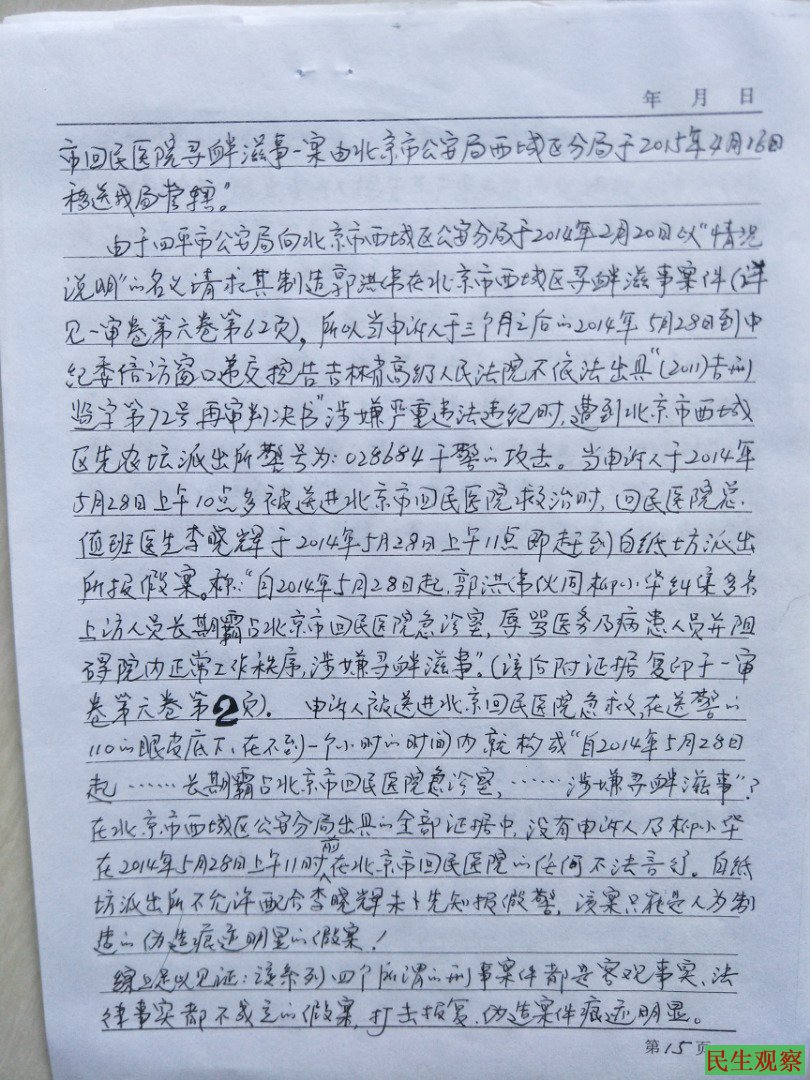 年 月 日
市回民医院寻衅滋事一案由北京市公安局西城区分局于2015年4月16日
移送我局管辖。”
由于四平市公安局向北京市西城区公安分局于2014年2月20日以“情况
说明”的名义请求其制造郭洪伟在北京市西城区寻衅滋事案件(详
见一审卷第六卷第62页)，所以当申诉人于三个月之后的2014年5月28日到中
纪委信访窗口递交控告吉林省高级人民法院不依法出具“(2011)吉刑
监字第72号再审判决书”涉嫌严重违法违纪时，遭到北京市西城
区先农坛派出所警号为：028684干警的攻击。当申诉人于2014年
5月28日上午10点多被送进北京市回民医院救治时，回民医院总
值班医生李晓辉于2014年5月28日上午11点即赶到白纸坊派出
所报假案。称：“自2014年5月28日起，郭洪伟伙同柳小华纠集多名
上访人员长期霸占北京市回民医院急诊室，辱骂医务及病患人员并阻
碍院内正常工作秩序，涉嫌寻衅滋事”。(该后附证据复印于一审
卷第六卷第2页)。 申诉人被送进北京回民医院急救，在送警的
110的眼皮底下，在不到一个小时的时间内就构成“自2014年5月28日
起……长期霸占北京市回民医院急诊室，……涉嫌寻衅滋事”？
在北京市西城区公安分局出具的全部证据中，没有申诉人及柳小华
在2014年5月28日上午11时前在北京市回民医院的任何不法言行。白纸
坊派出所不允许配合李晓辉未卜先知报假警，该案只能是人为制
造的伪造痕迹明显的假案！
综上足以见证：该系列四个所谓的刑事案件都是客观事实、法
律事实都不成立的假案，打击报复、伪造案件痕迹明显。
第15页
民生观察